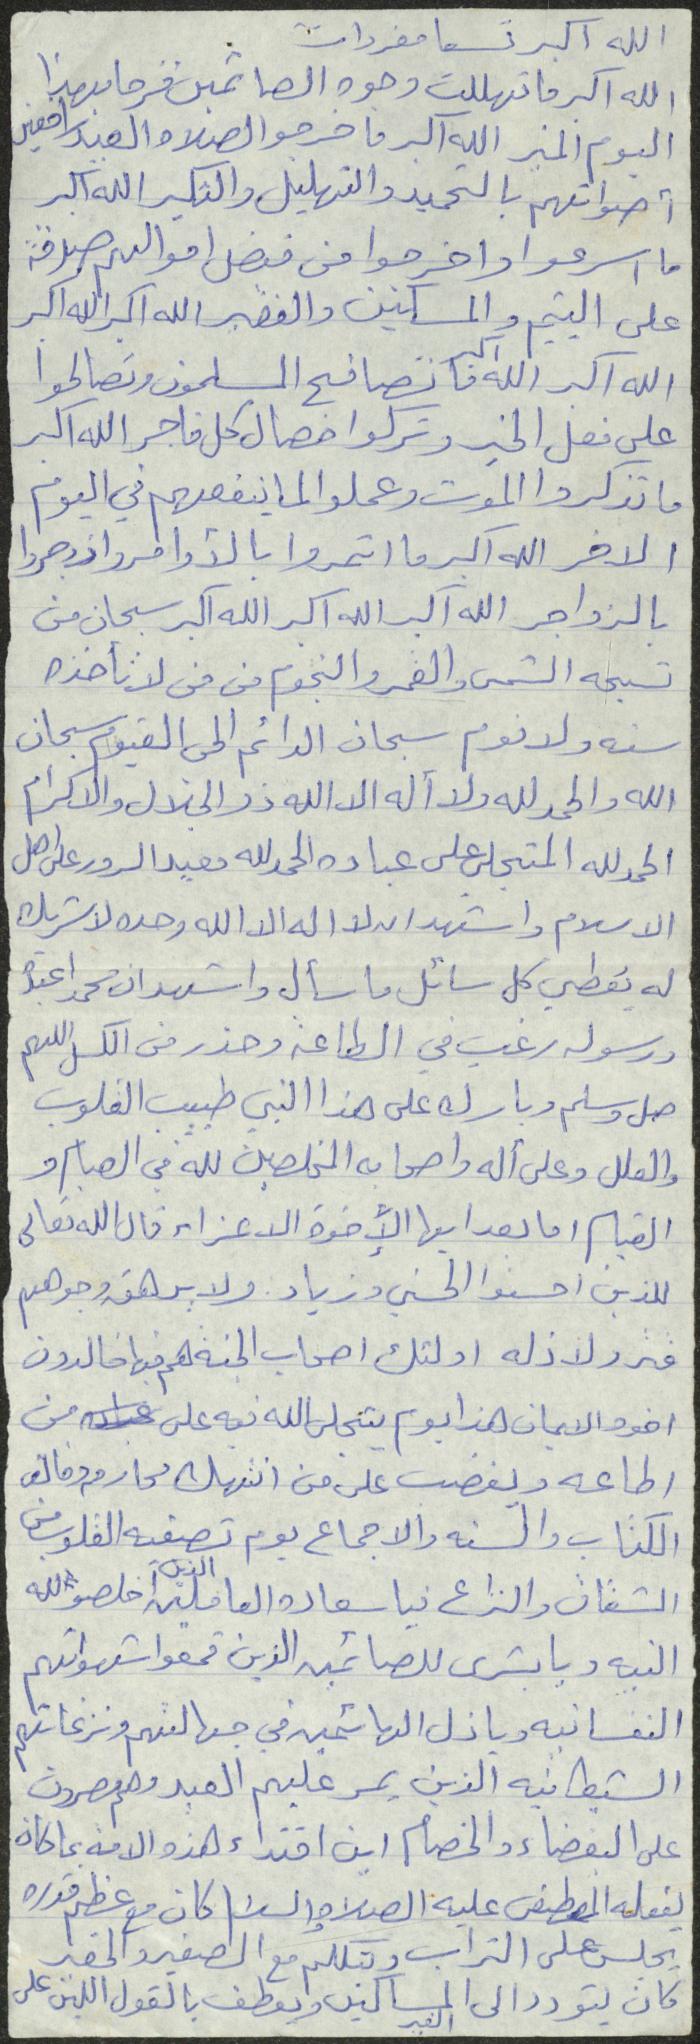 الله اكبر تسعا مفردات
الله اكبر ما تهللت وجوه الصائمين فرحا بهذا
اليوم المنير الله اكبر ما خرجوا لصلاة العيد رافعين
أصواتهم بالتحميد والتهليل والتكبير الله اكبر
ما اسرعوا واخرجوا من فضل اموالهم صدقة
على اليتيم والمسكين والفقير الله اكبر الله اكبر
الله اكبر الله اكبر ما تصافح المسلمون وتصالحوا
على فعل الخير وتركوا خصال كل فاجر الله اكبر
ما تذكروا الموت وعملوا لما ينفعهم في اليوم
الاخر الله اكبر ما ائتمروا بالأوامر وازدجروا
بالزواجر الله اكبر الله اكبر الله اكبر سبحان من
تسبحه الشمس والقمر والنجوم من من لا تأخذه
سنه ولا نوم سبحان الدائم الحي القيوم سبحان
الله والحمد لله ولا أله الا الله ذو الجلال والاكرام
الحمد لله المتجلي على عباده الحمد لله معيد السرور على اهل
الاسلام واشهد ان لا اله الا الله وحده لا شريك
له يعطي كل سائل ما سأل واشهد ان محمدا عبده
ورسوله رغب في الطاعة وحذر من الكسل اللهم
صل وسلم وبارك على هذا النبي طبيب القلوب
والعلل وعلى أله واصحابه المخلصين لله في الصيام و
القيام اما بعد ايها الأخوة الاعزاء قال الله تعالى
للذين احسنوا الحسنى وزياد. ولا يرهق وجوههم
قتر ولا ذله اولئك اصحاب الجنة هم فيها خالدون
اخوة الايمان هذا يوم يتجلى الله فيه على عباده من
اطاعه ويغضب على من انتهك محارمه وخالف
الكتاب والسنه والاجماع يوم تصفيه القلوب من
الشقاق والنزاع فيا سعاده العاملين الذين أخلصوا لله
النيه ويا بشرى للصائمين الذين قمعوا شهواتهم
النفسانيه ويا ذل الهائمين في جهالتهم ونزغاتهم
الشيطانيه الذين يمر عليهم العيد وهم مصرون
على البغضاء والخصام اين اقتداء هذه الامة بما كان
يفعله المصطفى عليه الصلاه والسلام كان مع عظم قدره
يجلس على التراب ويتكلم مع الصغير والحقير
كان يتودد الى المساكين ويعطف بالقول اللين على